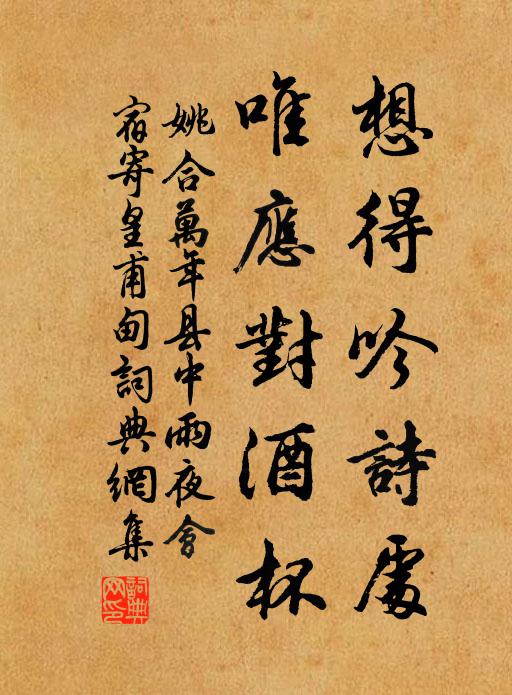 想得吟詩處
唯應對酒杯
姚合萬年县中雨夜會
宿寄皇甫甸詞典網集
詞典網印